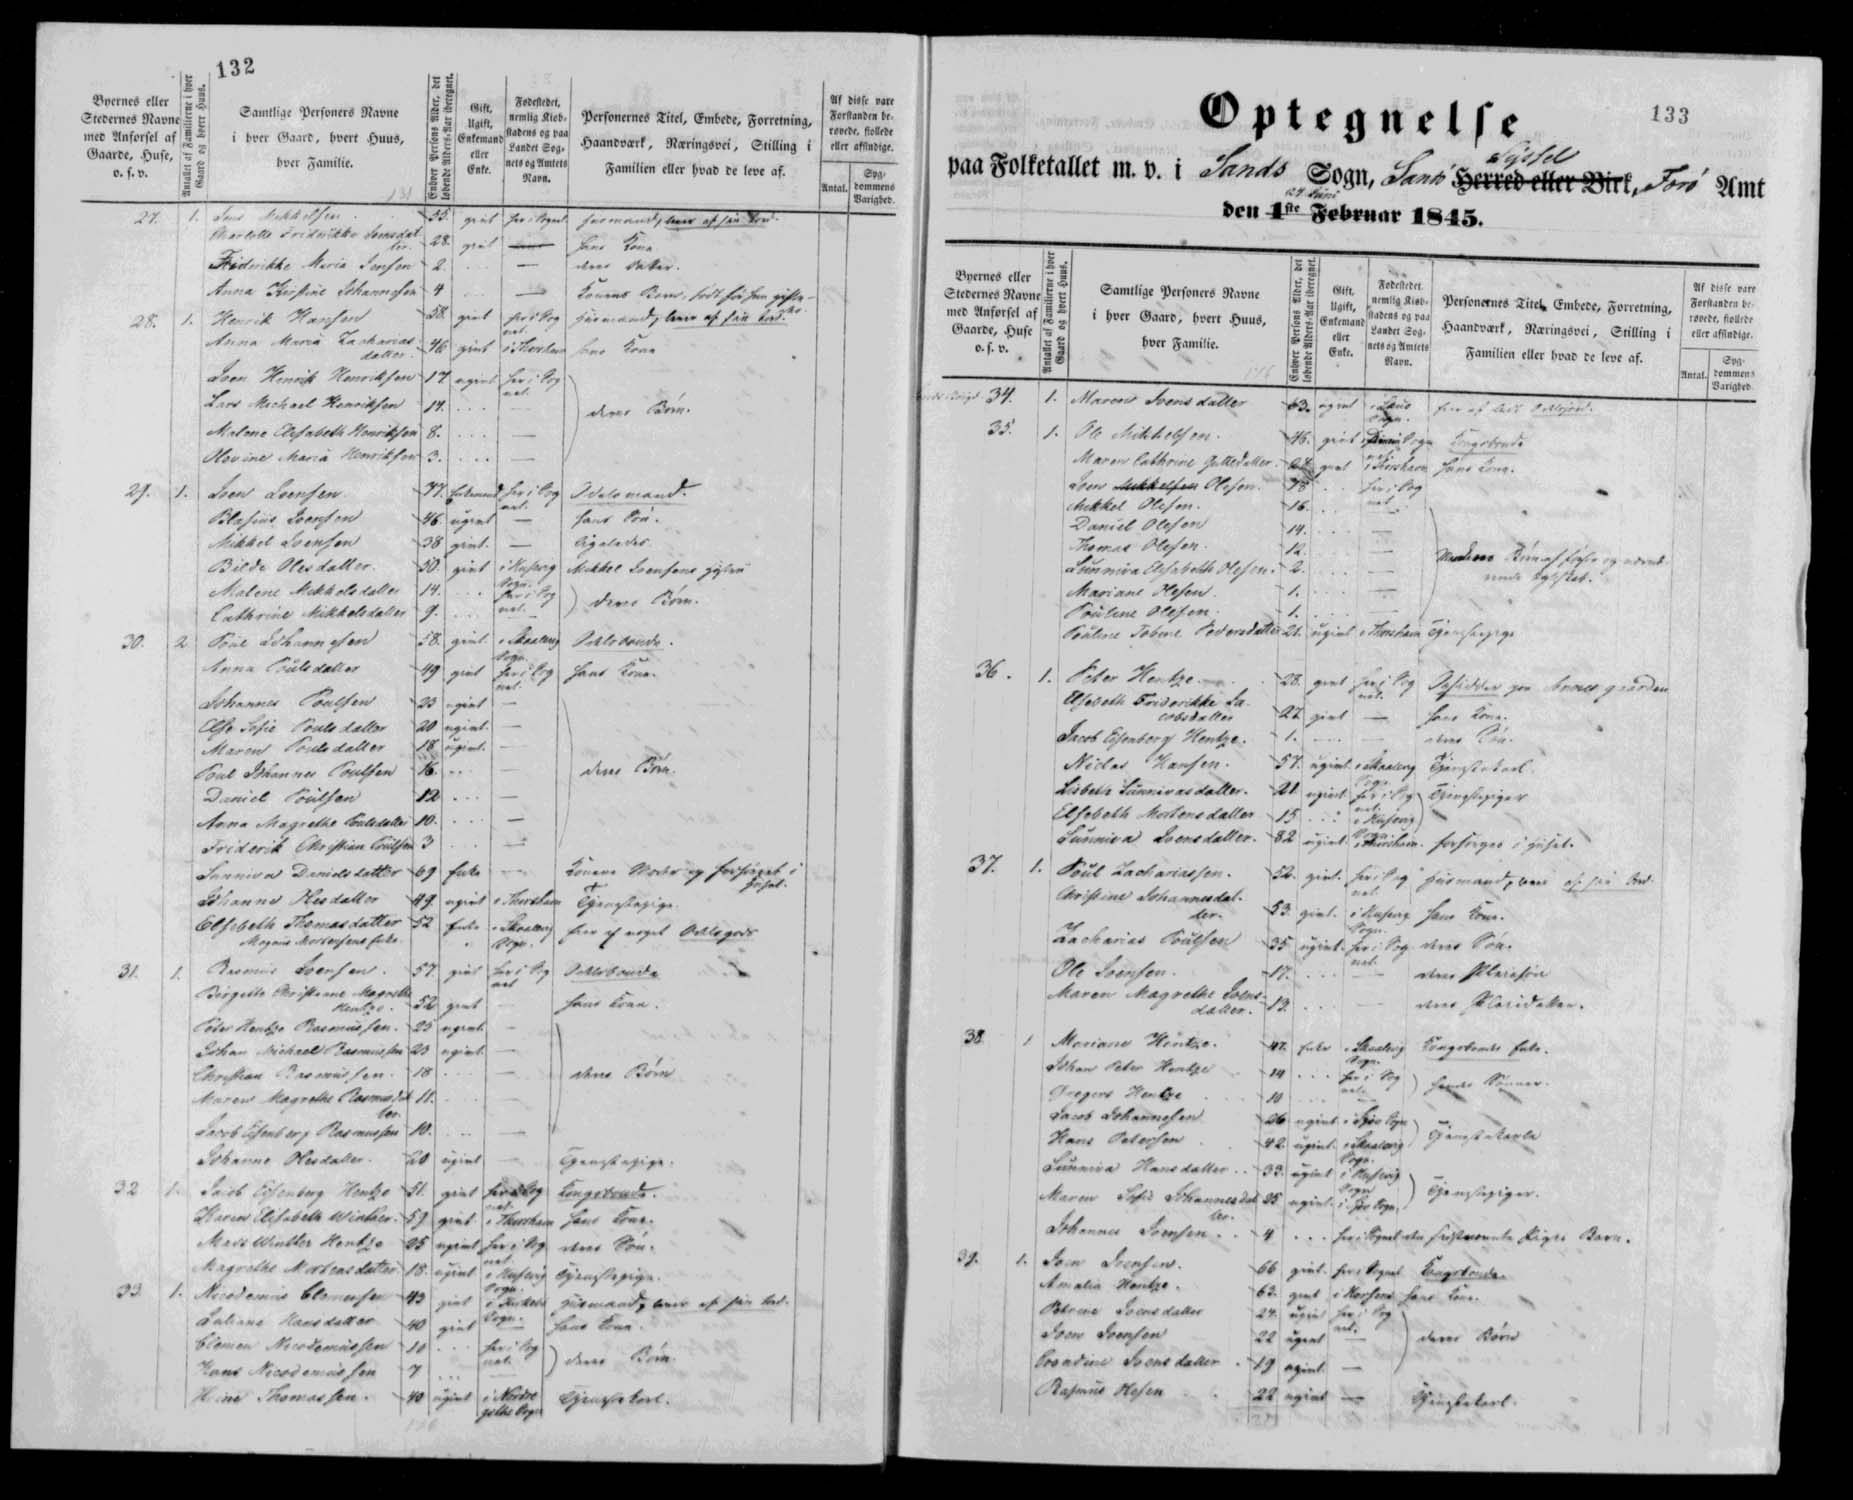 132
Byernes eller
Stedernes Navne
med Anførsel af
Gaarde, Huse,
o. s. v.
Antallet af Familierne i hver
Gaard og hvert Huus.
Samtlige Personers Navne
i hver Gaard, hvert Huus,
hver Familie.
Enhver Persons Alder, det
løbende Alders-Aar iberegnet.
Gift,
Ugift,
Enkemand
eller
Enke.
Fødestedet,
nemlig Kiøb-
stadens og paa
Landet Sog-
nets og Amtets
Navn.
Personernes Titel, Embede, Forretning,
Haandværk, Næringsvei, Stilling i
Familien eller hvad de leve af.
Af disse vare
Forstanden be-
røvede, fiollede
eller afsindige.
Antal.
Syg-
dommens
Varighed.
27. 1. Jens Mikkelsen 55. givt her i Sognet
Charlotte Fridrikke Joensdat
ter 28. givt — hans Kone
Fridrikke Maria Jensen 2 . . . — deres Datter.
Anna Kirstine Johannesen 4 . . . —
28. 1. Henrik Hansen 58. givt her i Sog
net.
Anna Maria Zacharias
datter 46 givt i Thorshavn hans Kone
Joen Henrik Henriksen 17 ugivt her i Sog
net.
Lars Michael Henriksen 14. . . . — deres Børn.
Malene Elisabeth Henriksen 8. . . . —
Olevine Maria Henriksen 3. . . . —
29. 1. Joen Joensen 77. Enkemand her i Sog
net. Odelsmand.
Blasius Joensen 46. ugivt — hans Søn.
Mikkel Joensen 38 givt. — ligeledes
Bilde Olesdatter. 50. givt i Husevig
Sogn. Mikkel Joensens hustru
Malene Mikkelsdatter 14. . . . her i Sog
net. deres Børn.
Cathrine Mikkelsdatter 9. . . .
30. 2 Poul Johannesen 58. givt. i Skaalevig
Sogn. Odelsbonde.
Anna Poulsdatter 49 givt her i Sog
net. hans Kone.
Johannes Poulsen 23 ugivt —
Else Sofie Poulsdatter 20 ugivt. —
Maren Poulsdatter 18 ugivt. —
Poul Johannes Poulsen 16. . . . — deres Børn.
Daniel Poulsen 12 . . . —
Anna Magrethe Poulsdatter 10. . . . —
Friderik Christian Poulsen 3 . . . —
Sunniva Danielsdatter 69 Enke — Konens Moder og forsørget i
huset.
Johanne Olesdatter 49. ugivt i Thorshavn Tjenestepige.
Elsebeth Thomasdatter 52 Enke i Skaalevig
Sogn. lever af noget Odelsgods
Magnus Mortensens Enke
31. 1. Rasmus Joensen. 57. givt her i Sog
net Odelsbonde
Birgette Christiane Magrethe
Hentze. 52 givt — hans Kone.
Peter Hentze Rasmussen. 25 ugivt —
Johan Michael Rasmussen 23 ugivt. —
Christian Rasmussen. 18 . . . — deres Børn
Maren Magrethe Rasmusdat
ter. 11. . . . —
Jacob Eisenberg Rasmussen 10. . . . —
Johanne Olesdatter. 20 ugivt — Tjenestepige.
32 1. Jacob Eisenberg Hentze 51. givt her i Sog
net. Kongsbonde.
Karen Elisabeth Winther. 59 givt i Thorshavn hans Kone.
Mads Winther Hentze 25 ugivt her i Sog
net. deres Søn.
Magrethe Mortensdatter 18. ugivt i Husevig
Sogn. Tjenestepige.
33 1. Nicodemus Clemensen 43 givt
Juliane Hansdatter 40 givt hans Kone.
Clemen Nicodemussen 10 . . . her i Sog
net. deres Børn.
Hans Nicodemussen 7 . . .
Heine Thomassen. 40 ugivt i Nordre
gøthe Sogn Tjenestekarl.
133
Optegnelse
paa Folketallet m. v. i Sands Sogn, Sandø Syssel Herred eller Birk, Færø Amt
den 1ste Februar 1845.
Byernes eller
Stedernes Navne
med Anførsel af
Gaarde, Huse
o. s. v.
Antallet af Familierne i hver
Gaard og hvert Huus.
Samtlige Personers Navne
i hver Gaard, hvert Huus,
hver Familie.
Enhver Persons Alder, det
løbende Alders-Aar iberegnet.
Gift,
Ugift,
Enkemand
eller
Enke.
Fødestedet,
nemlig Kiøb-
stadens og paa
Landet Sog-
nets og Amtets
Navn.
Personernes Titel, Embede, Forretning,
Haandværk, Næringsvei, Stilling i
Familien eller hvad de leve af.
Af disse vare
Forstanden be-
røvede, fiollede
eller afsindige.
Antal.
Syg-
dommens
Varighed.
34. 1. Maren Joensdatter 63. ugivt
35. 1. Ole Mikkelsen. 46. givt Kongsbonde
Maren Cathrine 24 givt i Thorshavn hans Kone.
Joen Mikkelsen Olesen. 18 . . her i Sog
net
Mikkel Olesen. 16. . . .
Daniel Olesen 14. . . . —
Thomas Olesen. 12. . . . —
Sunniva Elisabeth Olesen. 2. . . . —
Mariane Olesen. 1. . . . —
Pouline Olesen. 1. . . . —
Pouline Tobine Pedersdatter 21. ugivt i Thorshavn Tjenestepige
36. 1. Peter Hentze 28. givt her i Sog
net.
Elsebeth Friderikke Ja-
cobsdatter 27 givt — hans Kone.
Jacob Eisenberg Hentze. 1. . . . — deres Søn.
Niclas Hansen. 57. ugivt i Skaalevig
Sogn. Tjenestekarl.
Lisbeth Sunnivasdatter. 21. ugivt her i Sog
net. Tjenestepiger
Elsebeth Mortensdatter 15 . . . i Husevig
Sogn
Sunniva Joensdatter. 82 ugivt. i Thorshavn. forsørges i huset.
37. 1. Poul Zachariassen. 52. givt. her i Sog
net.
Christine Johannesdat-
ter. 53. givt. i Husevig
Sogn. hans Kone.
Zacharias Poulsen 35. ugivt her i Sog
net. deres Søn.
Ole Joensen. 17. . . . — deres Pleiesøn
Maren Magrethe Joens-
datter. 13. . . . — deres Pleiedatter.
38 1 Mariane Hentze. 47. Enke i Skaalevig
Sogn. Kongsbondes Enke.
Johan Peter Hentze 14 . . . her i Sog
net. hendes Sønner.
Dregers Hentze 10 . . .
Jacob Johannesen 26 ugivt
Hans Petersen 42. ugivt. i Skaalevig
Sogn. Tjenestekarle
Sunniva Hansdatter 33. ugivt i Husevig
Sogn Tjenestepiger.
Maren Sofie Johannesdat
ter. 25 ugivt.
Johannes Joensen 4 . . . her i Sognet
39. 1. Joen Joensen. 66 givt. her i Sognet Kongsbonde.
Amalia Hentze. 62. givt hans Kone.
Petrine Joensdatter 24. ugivt her i Sog
net.
Joen Joensen 22 ugivt — deres Børn
Joensdatter 19 ugivt. —
Rasmus Olesen 22 ugivt — Tjenestekarl.